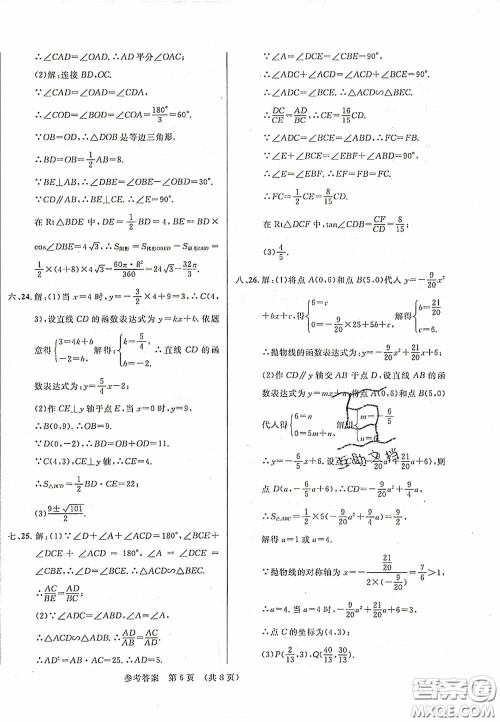 ∴∠CAD=∠OAD.∴AD平分∠OAC;
(2)解:连接BD,OD.
∵∠CAD=∠OAD=∠CDA,
∴∠COD=∠BOD=∠COA=180°/3=60°.
∵OB=OD,∴△DOB是等边三角形.
∴BD=OB=1/2AB=8.
∵BE⊥AB,∴∠DBE=∠OBE-∠OBD=30°.
∵CD∥AB,BE⊥AB,∴DE⊥BE.
在Rt△BDE中,DE=1/2BD=4,BE=BD×
cos∠DBE=4√3,∴S阴影=S梯形OBED-S扇形BOD=
1/2×(4+8)×4√3-60π·8²/360=24√3-32π/3.
六、24.解:(1)当x=4时,y=-3/2×4+9=3,∴C(4,
3),设直线CD的函数表达式为y=kx+b.依题
意得{3=4k+b -2=b 解得:{k=5/4 b=-2 ∴直线CD的函
数表达式为:y=5/4x-2;
(2)作CE⊥y轴于点E,当x=0时,y=9.
∴B(0,9).∴OB=9.
∵D(0,-2),∴BD=OB+OD=11.
∵C(4,3),CE⊥y轴,∴CE=4.
∴S△BCD=1/2BD·CE=22;
(3)9±√101/2.
七、25.解:(1)∵∠D+∠A+∠ACD=180°,∠BCE+
∠DCE+∠ACD=180°,∠A=∠DCE,
∴∠D=∠BCE.∵∠A=∠B,∴△ACD∽△BEC,
∴AC/BE=AD/BC;
(2)∵∠ADC=∠BCE,∠A=∠DCE,
∴△ACD∽△CED.∴AD/CD=AC/CE.∴AD/AC=CD/CE.
∴AD²=AC·AB=25.∴AD=5;
∵∠A=∠DCE=∠CBE=90°,
∴∠ADC+∠ACD=∠ACD+∠FCE=90°.
∴∠ADC=∠BCE.∴△ADC∽△BCE.
∴DC/CE=AD/BC.∴CE=16/15CD.
∵∠ADC=∠BCE=∠EBF,
∴∠ADC=∠FBC=∠FCB.∴FC=FB.
∵∠E+∠FCE=∠EBF+∠FBC=90°,
∴∠E=∠EBF.∴FB=FE.
∴FC=1/2CE=8/15CD.
在Rt△DCF中,tan∠CDB=CF/CD=8/15;
(3)4/5.
八、26.解:(1)将点A(0,6)和点B(5,0)代入y=-9/20x²
+bx+c,得{6=c 0=-9/20×25+5b+c,解得:{b=21/20 c=6
∴抛物线的函数表达式为:y=-9/20x²+21/20x+6;
(2)作CD∥y轴交AB于点D,设直线AB的函
数表达式为y=mx+n,将点A(0,6)和点B(5,0)
代入得{6=n 0=5m+n,解得{m=-6/5 n=6
∴y=-6/5x+6.设C(a,-9/20a²+21/20a+6),则
点D(a,-6/5a+6),∴CD=-9/20a²+9/4a,
∴S△ABC=1/2×5(-9/20a²+9/4a)=9/2.
解得a=1或a=4.
∵抛物线的对称轴为x=-21/20/2×(-9/20)=7/6>1,
∴a=4.当a=4时,-9/20a²+21/20a+6=3.
∴点C的坐标为(4,3);
(3)P(2/13,3),Q(54/13,30/13).
参考答案 第6页 (共8页)